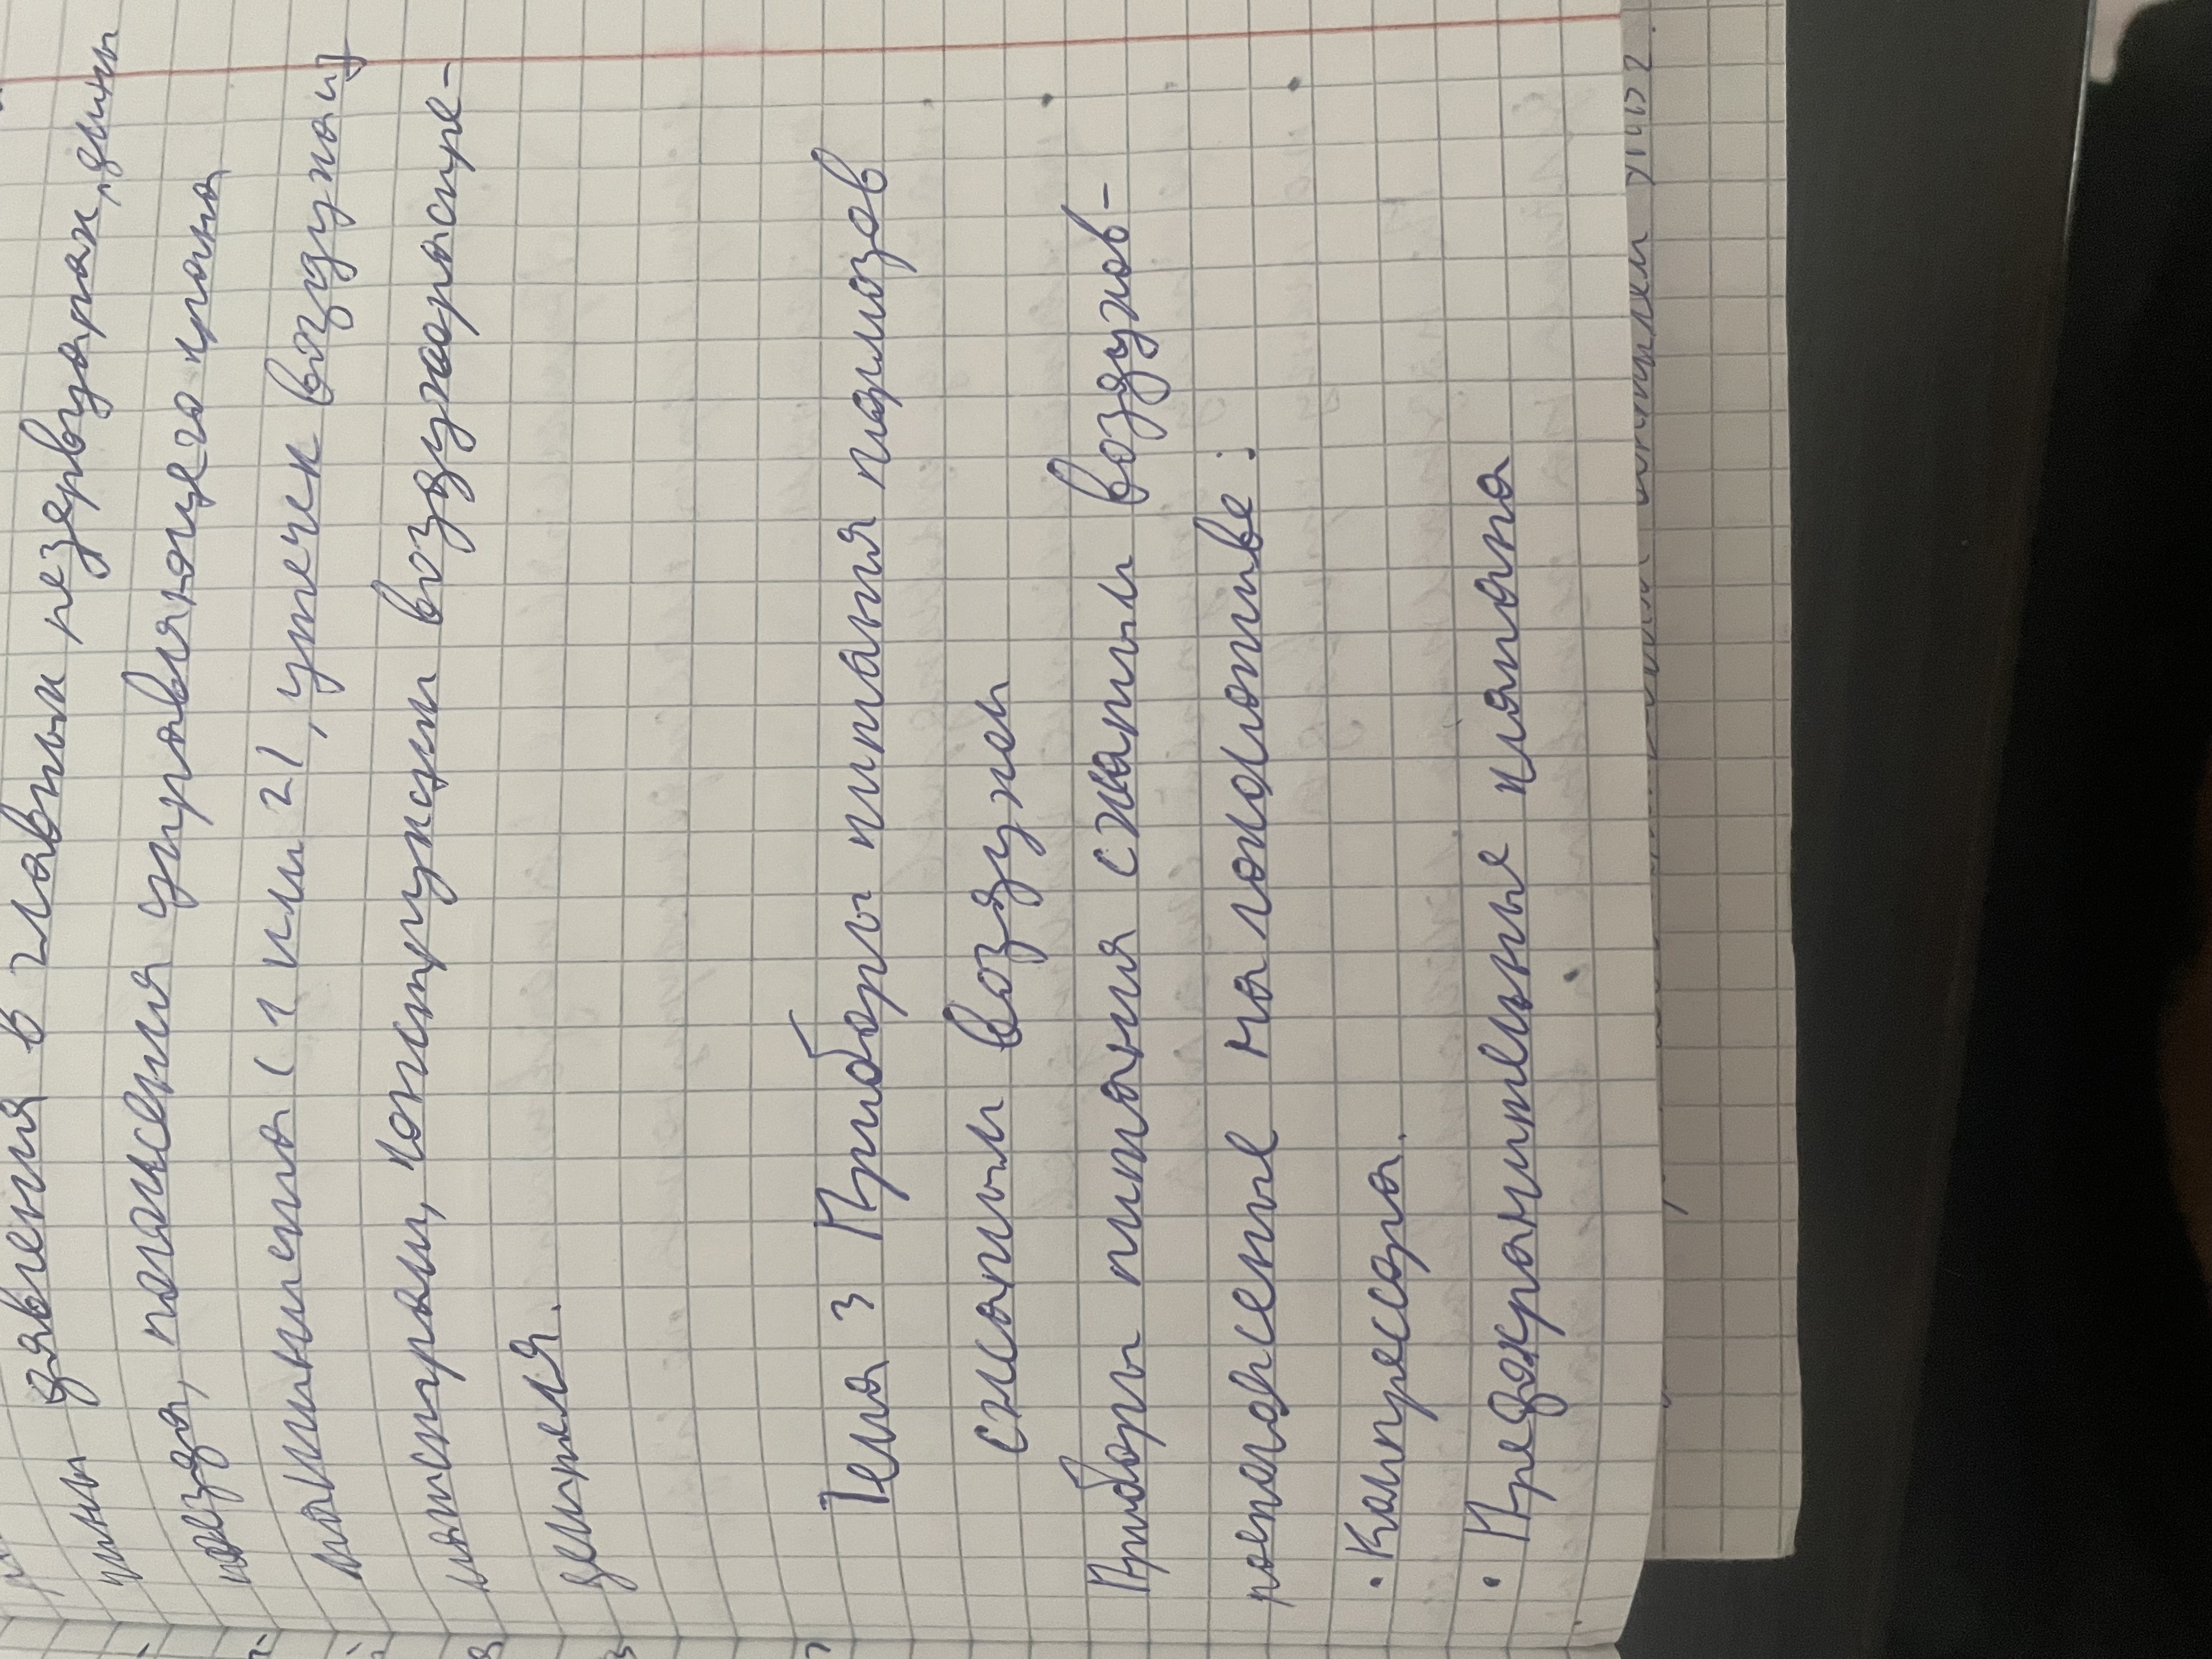 чины давления в главных резервуарах, длины
поезда, положения управляющего крана
машиниста (1 или 2), утечек воздуха из
магистрали, конструкции воздухораспре-
делителя.
Тема 3 Приборы питания тормозов
сжатым воздухом
Приборы питания сжатым воздухов-
расположеные на локомотиве:
• Компрессора.
• Предохранительные клапана